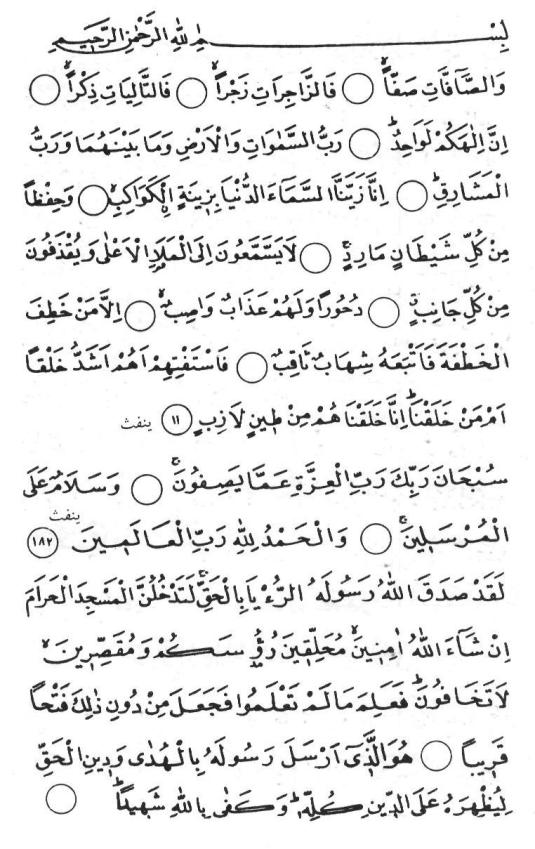 بِسْمِ اللهِ الرَّحْمٰنِ الرَّحٖيمِ
وَالصَّٓافَّاتِ صَفًّاۙ ○ فَالزَّاجِرَاتِ زَجْرًاۙ ○ فَالتَّالِيَاتِ ذِكْرًاۙ ○
اِنَّ اِلٰهَكُمْ لَوَاحِدٌؕ ○ رَبُّ السَّمٰوَاتِ وَالْاَرْضِ وَمَا بَيْنَهُمَا وَرَبُّ
الْمَشَارِقِؕ ○ اِنَّا زَيَّنَّا السَّمَٓاءَ الدُّنْيَا بِزٖينَةٍۨ الْكَوَاكِبِۙ ○ وَحِفْظًا
مِنْ كُلِّ شَيْطَانٍ مَارِدٍۚ ○ لَا يَسَّمَّعُونَ اِلَى الْمَلَأِ الْاَعْلٰى وَيُقْذَفُونَ
مِنْ كُلِّ جَانِبٍۗ ○ دُحُورًا وَلَهُمْ عَذَابٌ وَاصِبٌۙ ○ اِلَّا مَنْ خَطِفَ
الْخَطْفَةَ فَاَتْبَعَهُ شِهَابٌ ثَاقِبٌ ○ فَاسْتَفْتِهِمْ اَهُمْ اَشَدُّ خَلْقًا
اَمْ مَنْ خَلَقْنَاؕ اِنَّا خَلَقْنَاهُمْ مِنْ طٖينٍ لَازِبٍ ١١ ينفث
سُبْحَانَ رَبِّكَ رَبِّ الْعِزَّةِ عَمَّا يَصِفُونَۚ ○ وَسَلَامٌ عَلَى
الْمُرْسَلٖينَۚ ○ وَالْحَمْدُ لِلّٰهِ رَبِّ الْعَالَمٖينَ ينفث ١٨٢
لَقَدْ صَدَقَ اللهُ رَسُولَهُ الرُّءْيَا بِالْحَقِّۚ لَتَدْخُلُنَّ الْمَسْجِدَ الْحَرَامَ
اِنْ شَٓاءَ اللهُ اٰمِنٖينَۙ مُحَلِّقٖينَ رُؤُ۫سَكُمْ وَمُقَصِّرٖينَۙ
لَا تَخَافُونَؕ فَعَلِمَ مَا لَمْ تَعْلَمُوا فَجَعَلَ مِنْ دُونِ ذٰلِكَ فَتْحًا
قَرٖيبًا ○ هُوَ الَّذٖٓى اَرْسَلَ رَسُولَهُ بِالْهُدٰى وَدٖينِ الْحَقِّ
لِيُظْهِرَهُ عَلَى الدّٖينِ كُلِّهٖؕ وَكَفٰى بِاللهِ شَهٖيدًاؕ ○